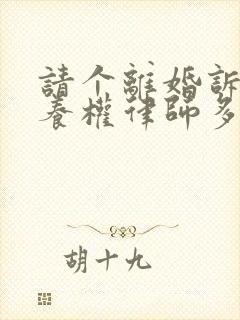 請个離婚訴
养權律師多
胡十九